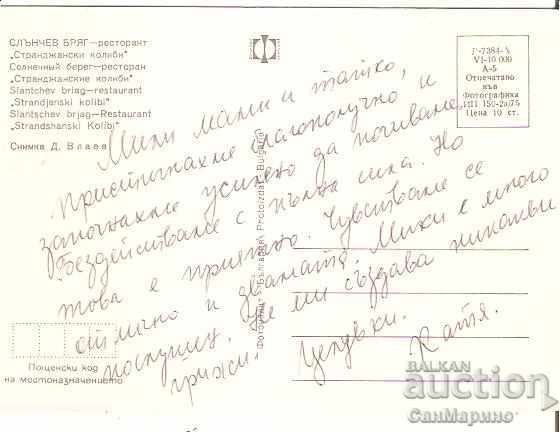 СЛЪНЧЕВ БРЯГ—ресторант
„Странджански колиби“
Солнечный берег—ресторан
„Странджанские колиби“
Slantchev briag—restaurant
„Strandjanski kolibi“
Slantschev brjag—Restaurant
„Strandshanski Kolibi“
Снимка Д. Влаев
Г-7384-А
VI-10 000
А-5
Отпечатано
във
Фотографика
ДП 150-2а/75
Цена 10 ст.
Мили мами и татко,
Пристигнахме благополучно и
започнахме усилено да почиваме.
Бездействаме с пълна сила. Но
това е приятно. Чувстваме се
отлично и двамата. Мики е много
послушен. Не ми създава никакви
грижи.
Целувки. Катя.
Фотоиздат „Българский“ Photoizdat Bulgaria
Пощенски код
на местоназначението
BALKAN
auction
СанМарино